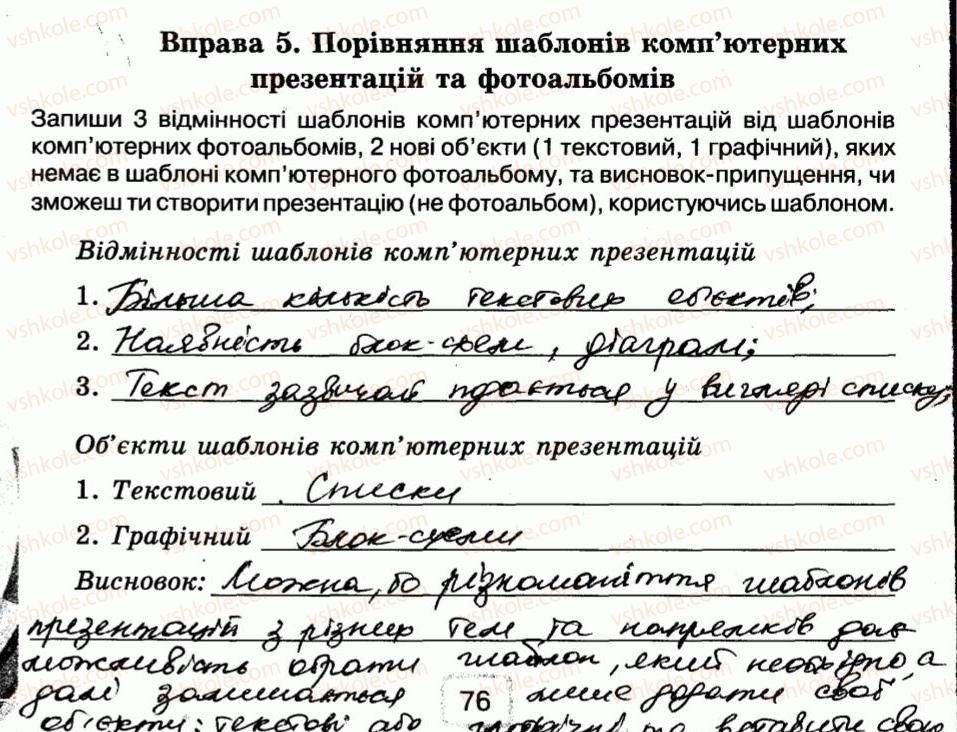 Вправа 5. Порівняння шаблонів комп'ютерних
презентацій та фотоальбомів
Запиши 3 відмінності шаблонів комп'ютерних презентацій від шаблонів
комп'ютерних фотоальбомів, 2 нові об'єкти (1 текстовий, 1 графічний), яких
немає в шаблоні комп'ютерного фотоальбому, та висновок-припущення, чи
зможеш ти створити презентацію (не фотоальбом), користуючись шаблоном.
Відмінності шаблонів комп'ютерних презентацій
1. Більша кількість текстових об'єктів;
2. Наявність блок-схем, діаграм;
3. Текст зазвичай подається у вигляді списку;
Об'єкти шаблонів комп'ютерних презентацій
1. Текстовий Списки
2. Графічний Блок-схеми
Висновок: Можна, бо різноманіття шаблонів
презентацій з різних тем та напрямків дає
можливість обрати шаблон, який необхідно, а
далі залишається лише додати свої
76
об'єкти: текстові або графічні та вставити свою